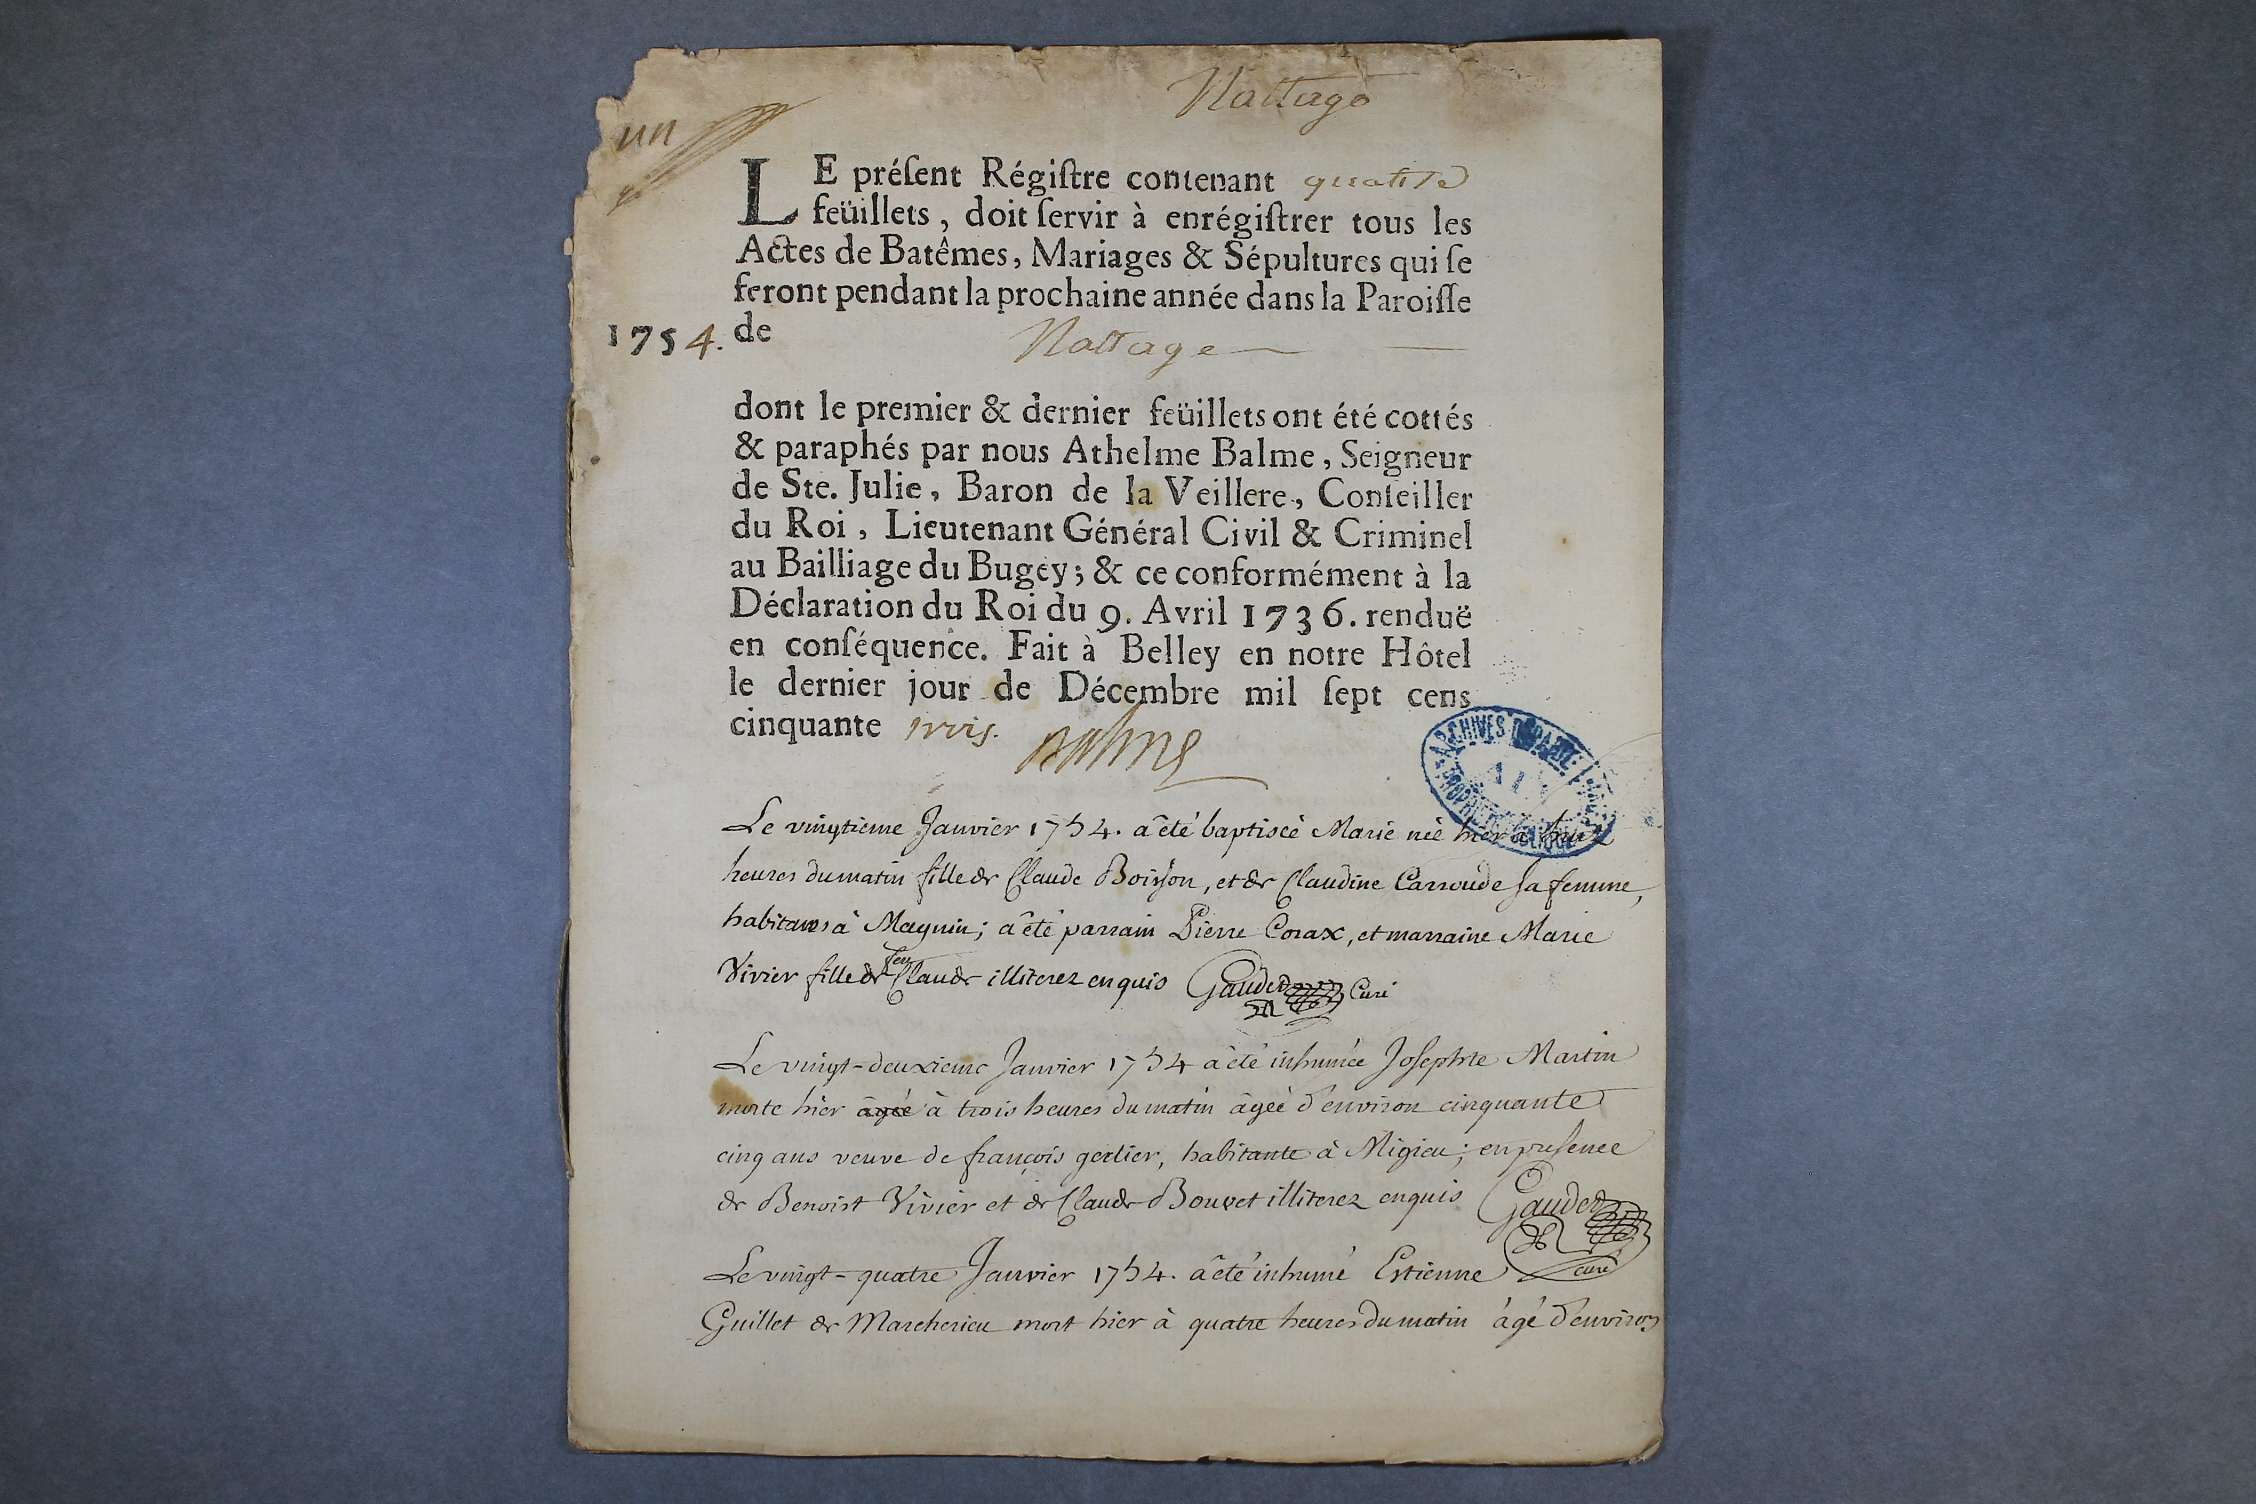 Nattage
un
LE préſent Régiſtre contenant quatre
feüillets, doit ſervir à enrégiſtrer tous les
Actes de Batêmes, Mariages & Sépultures qui ſe
feront pendant la prochaine année dans la Paroiſſe
1754. de Nattage
dont le premier & dernier feüillets ont été cottés
& paraphés par nous Athelme Balme, Seigneur
de Ste. Julie, Baron de la Veillere, Conſeiller
du Roi, Lieutenant Général Civil & Criminel
au Bailliage du Bugey; & ce conformément à la
Déclaration du Roi du 9. Avril 1736. renduë
en conſéquence. Fait à Belley en notre Hôtel
le dernier jour de Décembre mil ſept cens
cinquante trois. Balme
ARCHIVES
Le vingtieme Janvier 1754. â été baptisèè Marie neè hier à huit
heures du matin fille de Claude Boisson, et de Claudine Carroude sa femme,
habitans à Magnin; a été parrain Pierre Corax, et marraine Marie
Vivier fille de feu Claude illiterez enquis Gaudet Curé
Le vingt-deuxieme Janvier 1754 â été inhumée Josephte Martin
morte hier âgée à trois heures du matin âgeè d'environ cinquante
cinq ans veuve de françois gerlier, habitante à Migieu; en presence
de Benoist Vivier et de Claude Bouvet illiterez enquis Gaudet
curé
Le vingt-quatre Janvier 1754. â été inhumé Estienne
Guillet de Marcherieu mort hier à quatre heures du matin âgé d'environ